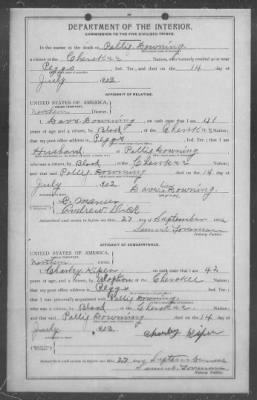 DEPARTMENT OF THE INTERIOR,
COMMISSION TO THE FIVE CIVILIZED TRIBES.
In the matter of the death of Pallis Downing
a citizen of the Cherokee Nation, who formerly resided at or near
Peggs, Ind. Ter., and died on the 14 day of
July, 1902
AFFIDAVIT OF RELATIVE.
UNITED STATES OF AMERICA,
INDIAN TERRITORY,
Northern District.
I, Dave Downing, on oath state that I am 41
years of age and a citizen, by Blood, of the Cherokee Nation;
that my post office address is Peggs, Ind. Ter.; that I am
Husband of Pallis Downing
who was a citizen, by Blood, of the Cherokee Nation;
and that said Pallis Downing died on the 14 day of
July, 1902
Dave Downing
Andrew
Subscribed and sworn to before me this 27 day of September 1902
Samuel Foreman
Notary Public.
AFFIDAVIT OF ACQUAINTANCE.
UNITED STATES OF AMERICA,
INDIAN TERRITORY,
Northern District.
I, Charley Kiper, on oath state that I am 42
years of age, and a citizen by adoption of the Cherokee Nation;
that my post office address is Peggs, Ind. Ter.;
that I was personally acquainted with Pallis Downing
who was a citizen, by Blood, of the Cherokee Nation;
and that said Pallis Downing died on the 14 day of
July, 1902
Charley Kiper
Subscribed and sworn to before me this 27 day of September
Samuel Foreman
Notary Public.